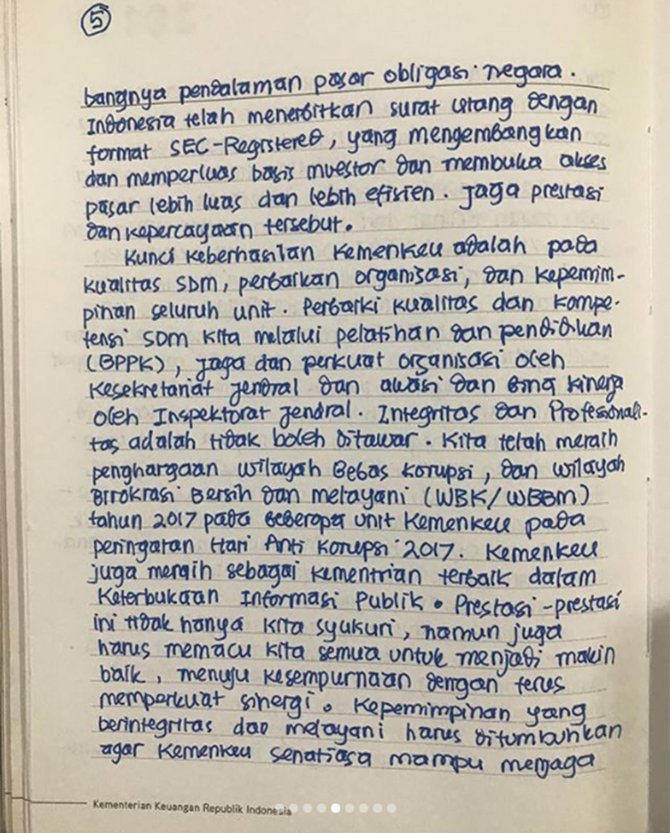 5
bangnya pendalaman pasar obligasi negara.
Indonesia telah menerbitkan surat utang dengan
format SEC-Registered, yang mengembangkan
dan memperluas basis investor dan membuka akses
pasar lebih luas dan lebih efisien. Jaga prestasi
dan kepercayaan tersebut.
Kunci keberhasilan Kemenkeu adalah pada
kualitas SDM, perbaikan organisasi, dan kepemim-
pinan seluruh unit. Perbaiki kualitas dan kompe-
tensi SDM kita melalui pelatihan dan pendidikan
(BPPK), jaga dan perkuat organisasi oleh
Kesekretariat Jendral dan awasi dan bina kinerja
oleh Inspektorat Jendral. Integritas dan Profesionali-
tas adalah tidak boleh ditawar. Kita telah meraih
penghargaan wilayah Bebas Korupsi, dan wilayah
Birokrasi Bersih dan melayani (WBK/WBBM)
tahun 2017 pada beberapa unit Kemenkeu pada
peringatan Hari Anti Korupsi 2017. Kemenkeu
juga meraih sebagai Kementrian terbaik dalam
Keterbukaan Informasi Publik. Prestasi-prestasi
ini tidak hanya kita syukuri, namun juga
harus memacu kita semua untuk menjadi makin
baik, menuju kesempurnaan dengan terus
memperkuat sinergi. Kepemimpinan yang
berintegritas dan melayani harus ditumbuhkan
agar Kemenkeu senatiasa mampu menjaga
Kementerian Keuangan Republik Indonesia